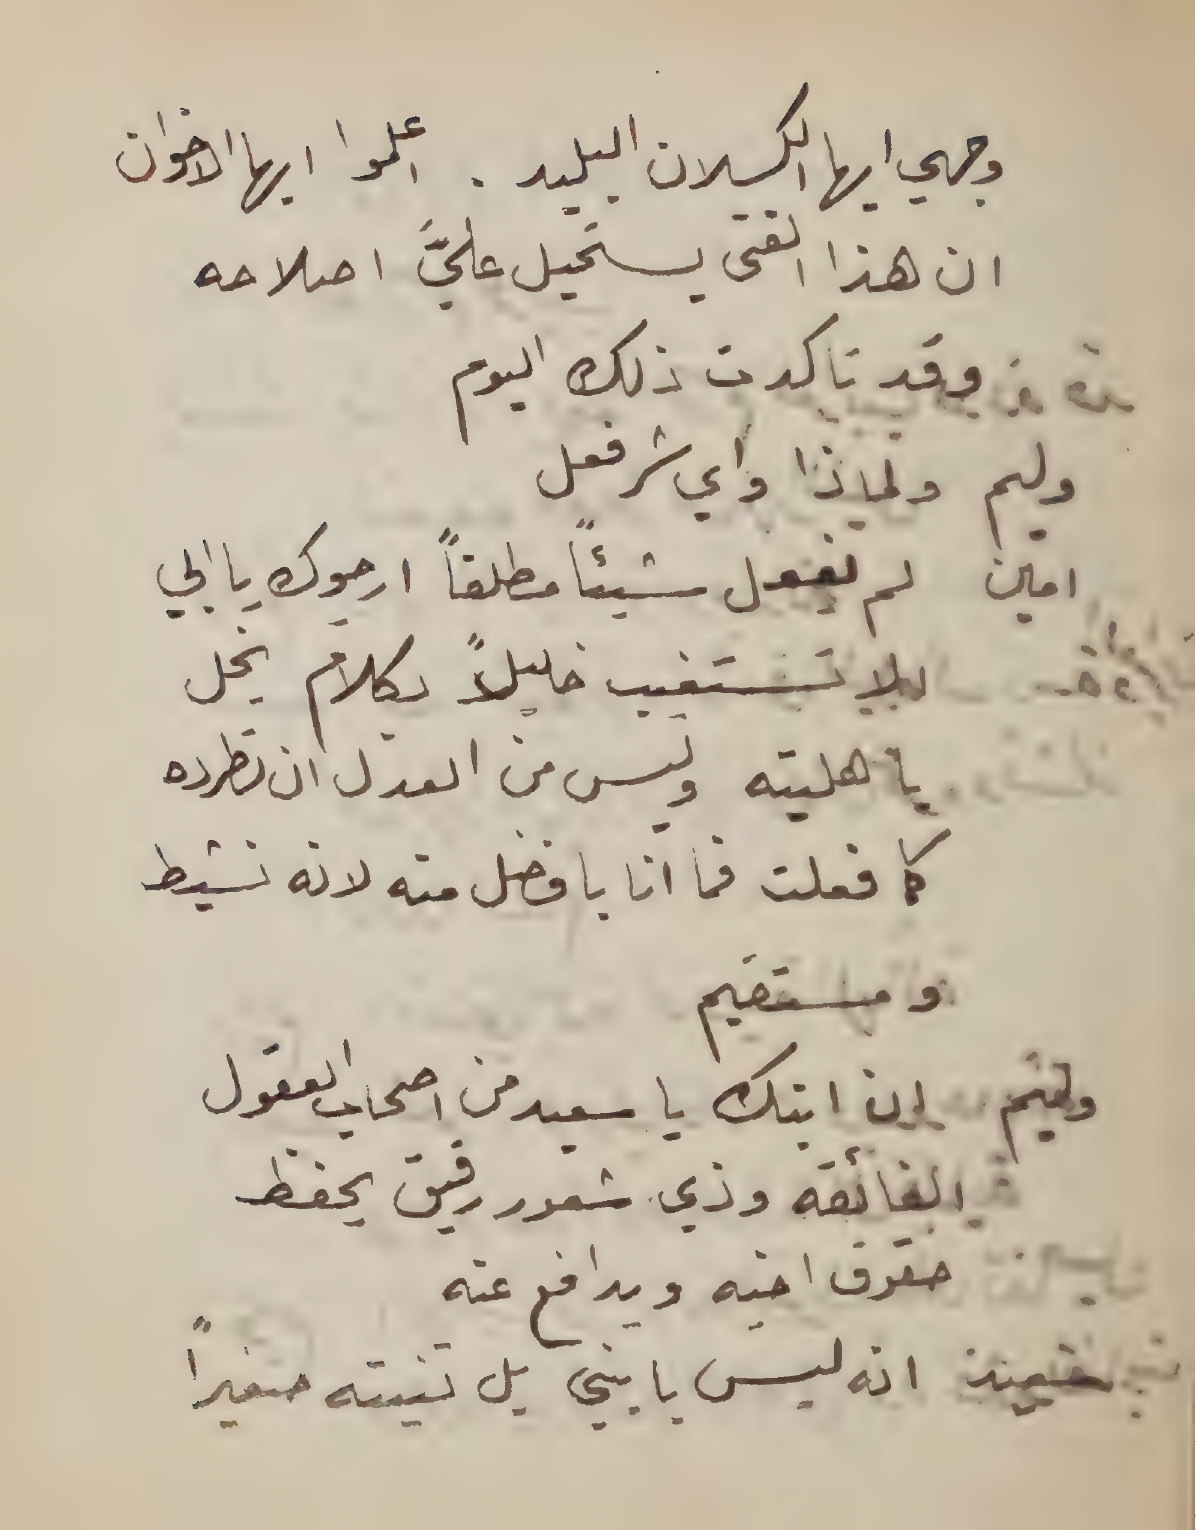 وجهي ايها الكسلان البليد . اعلموا ايها الاخوان
ان هذا الفتى يستحيل عليَّ اصلاحه
وقد تاكدت ذلك اليوم
وليم ولماذا واي شر فعل
امين لم يفعل شيئاً مطلقاً ارجوك يا ابي
بلا تستغيب خليلاً بكلام يخل
باهليته وليس من العدل ان تطرده
كما فعلت فما انا بافضل منه لانه نشيط
ومستقيم
وليم ان ابنك يا سعيد من اصحاب العقول
الفائقه وذي شعور رقيق يحفظ
حقوق اخيه ويدافع عنه
انه ليس بابني بل تبنيته صغيراً